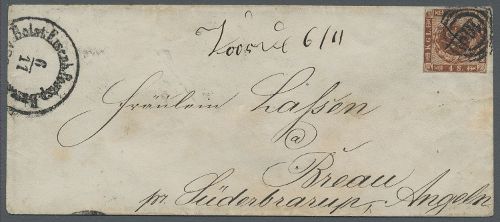 Voorde 6/11
Holst. Eisenb.
6
11
KGL
4 S.
Fräulein Lassen
a
Breau
pr. Süderbrarup, Angeln